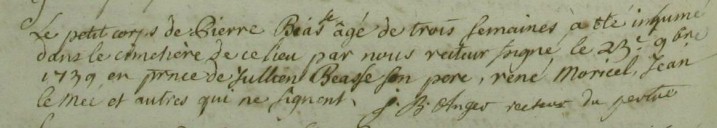 Le petit corps de Pierre Beasse âgé de trois semaines a été inhumé
dans le cimetière de ce lieu par nous recteur signé le 23e 9bre
1739 en prnce de Jullien Beasse son pere, rené Moricel, Jean
le Meé et autres qui ne signent. j. B. Anger recteur du pertre